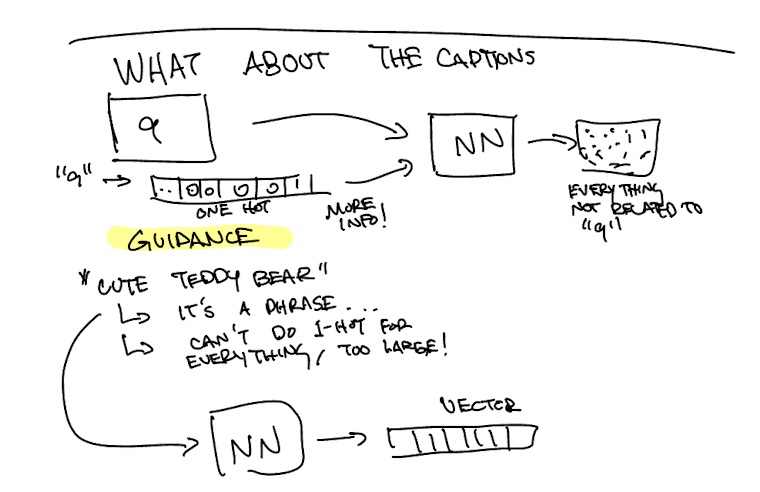 WHAT ABOUT THE CAPTIONS
9
NN
"9"
..0 0 0 0 1
ONE HOT
MORE
INFO!
EVERYTHING
NOT RELATED TO
"9"
GUIDANCE
"CUTE TEDDY BEAR"
IT'S A PHRASE...
CAN'T DO 1-HOT FOR
EVERYTHING, TOO LARGE!
VECTOR
NN